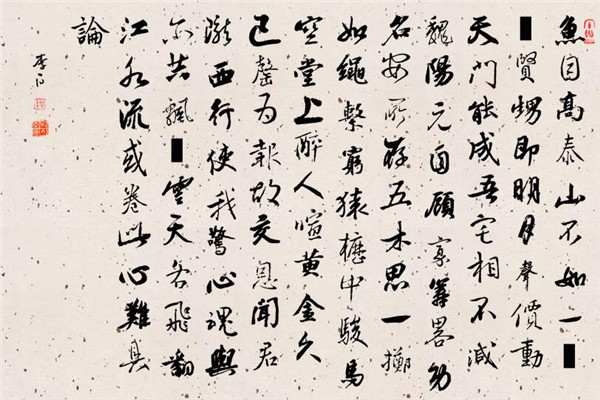 魚目高泰山不如一
賢甥即明月聲價動
天門能成吾宅相不減
魏陽元自顧寡籌畧功
名安所存五木思一擲
如繩繫窮猿櫪中駿馬
空堂上醉人喧黄金久
已罄为報故交恩聞君
隴西行使我驚心魂與
尔共飄雲天各飛翻
江水流或卷此心難具
論
李白